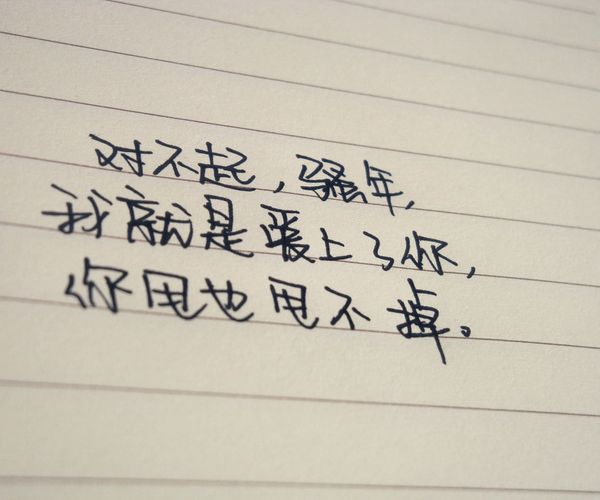 对不起，骚年，
我就是爱上了你，
你甩也甩不掉。